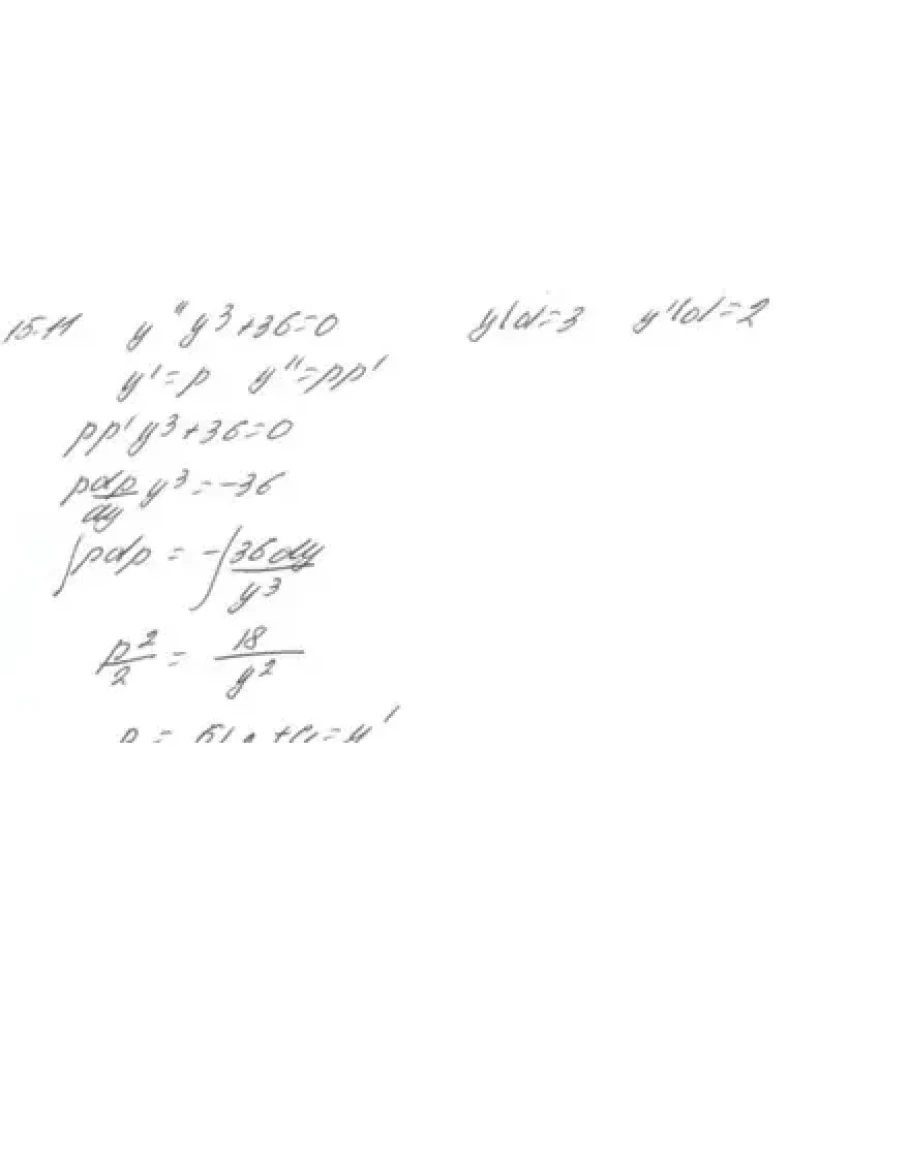 15.11 y''y³+36=0 y(0)=3 y'(0)=2
y'=p y''=pp'
pp'y³+36=0
p dp/dy y³=-36
∫pdp = -∫36dy/y³
p²/2 = 18/y²